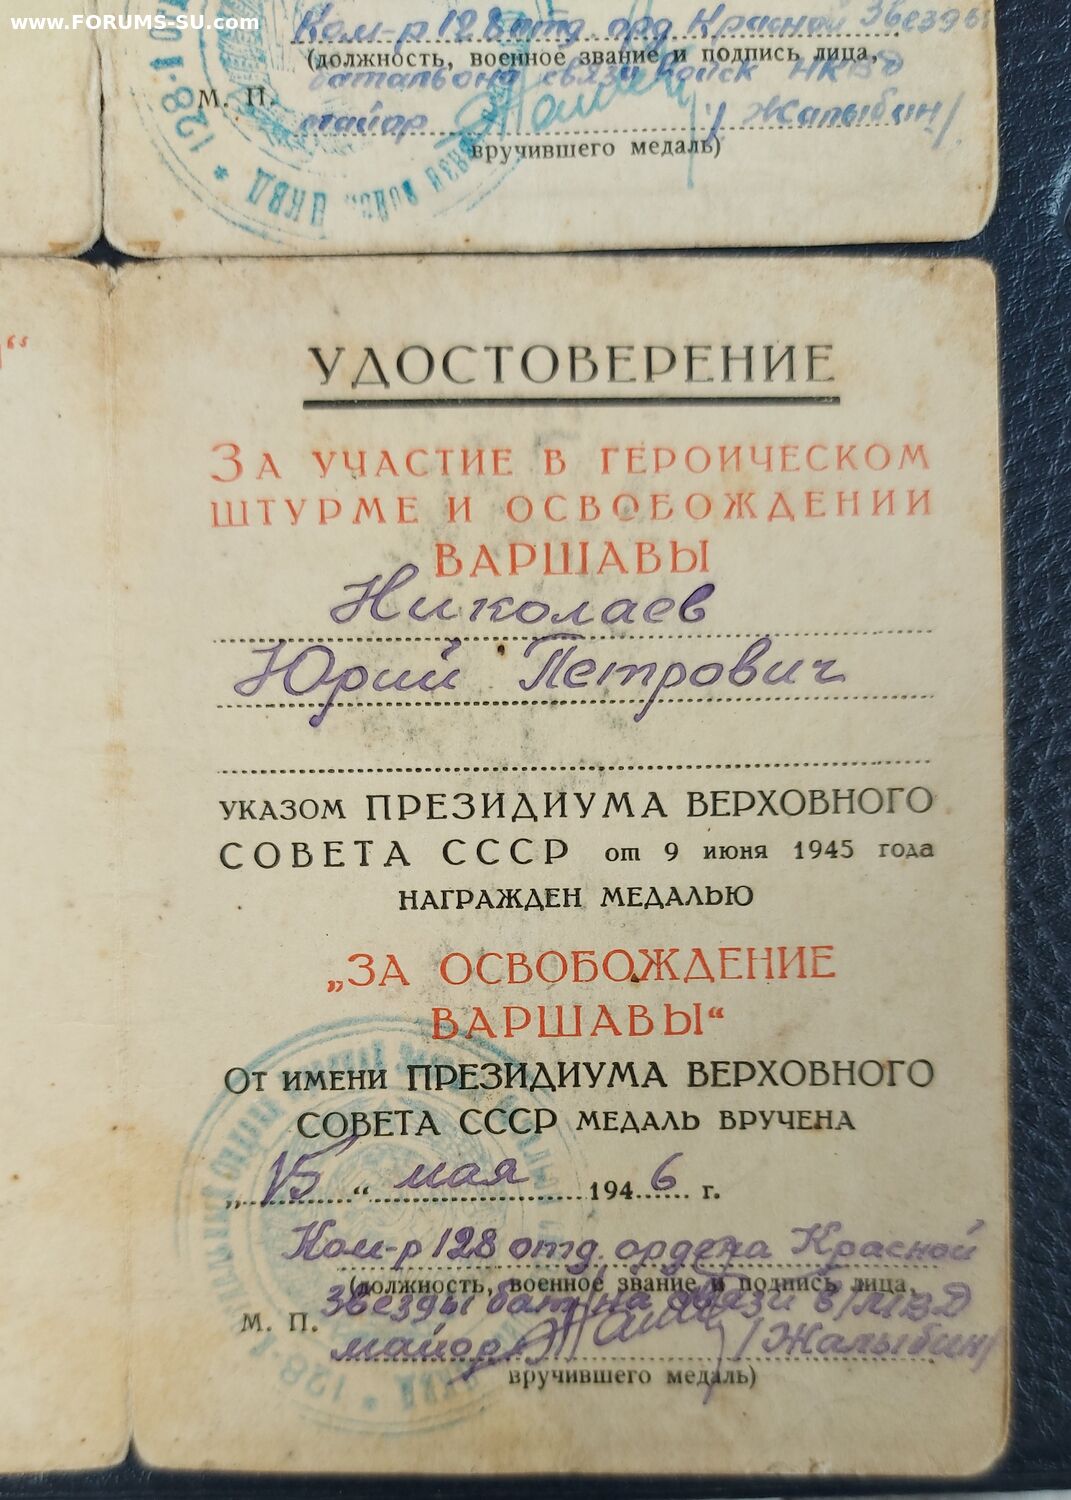 www.FORUMS-SU.com
Ком-р 128 отд. орд Красной Звезды
(должность, военное звание и подпись лица,
батальона связи войск НКВД
М. П.
майор /Жалыбин/
вручившего медаль)
128-й
НКВД
"
УДОСТОВЕРЕНИЕ
ЗА УЧАСТИЕ В ГЕРОИЧЕСКОМ
ШТУРМЕ И ОСВОБОЖДЕНИИ
ВАРШАВЫ
Николаев
Юрий Петрович
УКАЗОМ ПРЕЗИДИУМА ВЕРХОВНОГО
СОВЕТА СССР от 9 июня 1945 года
НАГРАЖДЕН МЕДАЛЬЮ
„ЗА ОСВОБОЖДЕНИЕ
ВАРШАВЫ“
ОТ ИМЕНИ ПРЕЗИДИУМА ВЕРХОВНОГО
СОВЕТА СССР МЕДАЛЬ ВРУЧЕНА
„15“ мая 1946 г.
Ком-р 128 отд. ордена Красной
(должность, военное звание и подпись лица,
Звезды бат-на связи в/МВД
М. П.
майор /Жалыбин/
вручившего медаль)
128-й
НКВД